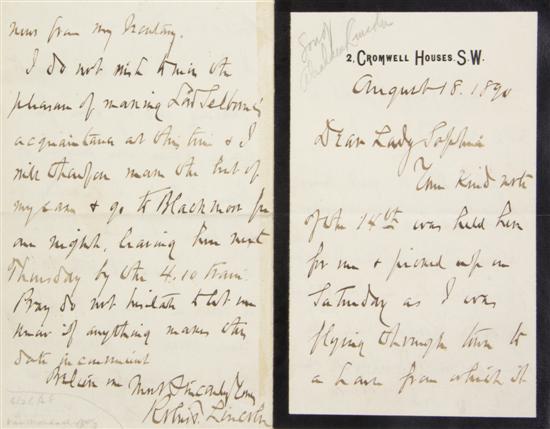 Son of
Abraham Lincoln
2, CROMWELL HOUSES. S.W.
August 18. 1890
Dear Lady Sophia
Your kind note
of the 14th was held here
for me & picked up on
Saturday as I was
flying through town to
a house from which it
news from my Secretary.
I do not wish to miss the
pleasure of making Lord Selborne's
acquaintance at this time & I
will therefore make the best of
my case & go to Blackmoor for
one night, leaving here next
Thursday by the 4.10 train.
Pray do not hesitate to let me
know if anything makes this
date inconvenient
Believe me Most Sincerely Yours
Robert T. Lincoln